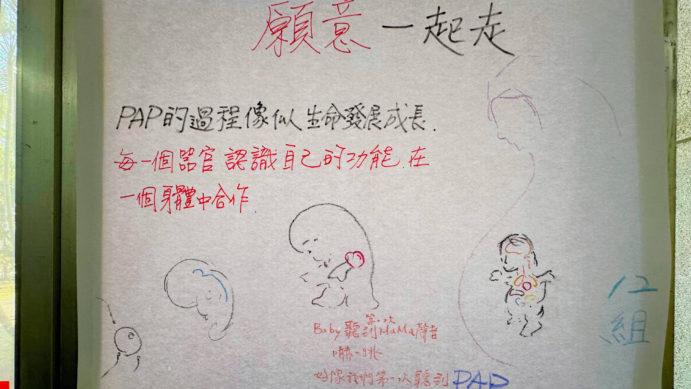 願意一起走
PAP的過程像似生命發展成長.
每一個器官認識自己的功能.在
一個身體中合作.
Baby聽第一次到MaMa聲音
嚇一跳
好像我們第一次聽到PAP
12
組